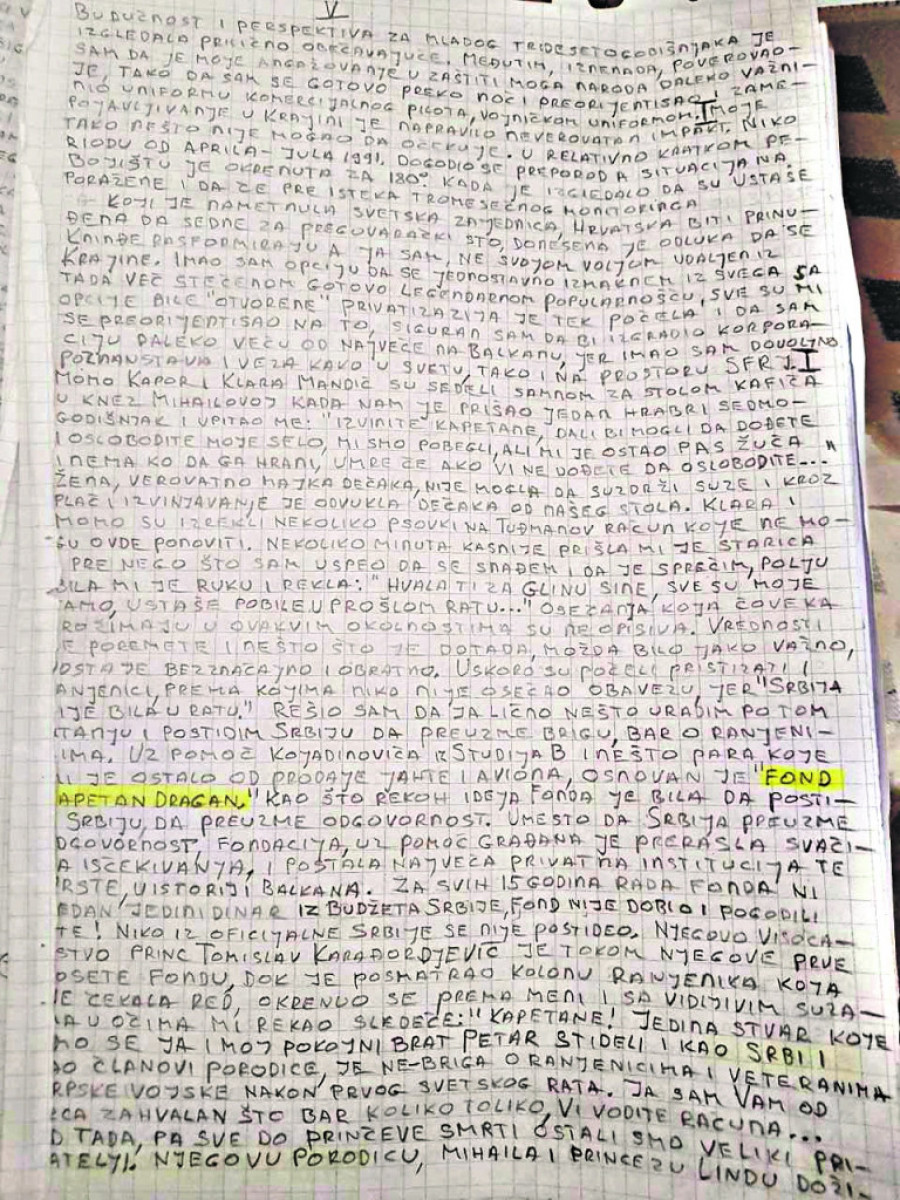 V
BUDUĆNOST I PERSPEKTIVA ZA MLADOG TRIDESETOGODIŠNJAKA JE
IZGLEDALA PRILIČNO OBEĆAVAJUĆE. MEĐUTIM, IZNENADA, POVEROVAO
SAM DA JE MOJE ANGAŽOVANJE U ZAŠTITI MOGA NARODA DALEKO VAŽNI-
JE, TAKO DA SAM SE GOTOVO PREKO NOĆI PREORIJENTISAO I ZAME-
NIO UNIFORMU KOMERCIJALNOG PILOTA, VOJNIČKOM UNIFORMOM. MOJE
POJAVLJIVANJE U KRAJINI JE NAPRAVILO NEVEROVATAN IMPAKT. NIKO
TAKO NEŠTO NIJE MOGAO DA OČEKUJE. U RELATIVNO KRATKOM PE-
RIODU OD APRILA - JULA 1991. DOGODIO SE PREPOROD A SITUACIJA NA
BOJIŠTU JE OKRENUTA ZA 180°. KADA JE IZGLEDALO DA SU USTAŠE
PORAŽENE I DA ĆE PRE ISTEKA TROMESEČNOG MONITORINGA
KOJI JE NAMETNULA SVETSKA ZAJEDNICA, HRVATSKA BITI PRINU-
ĐENA DA SEDNE ZA PREGOVARAČKI STO, DONESENA JE ODLUKA DA SE
KNINĐE RASFORMIRAJU A JA SAM, NE SVOJOM VOLJOM UDALJEN IZ
KRAJINE. IMAO SAM OPCIJU DA SE JEDNOSTAVNO IZMAKNEM IZ SVEGA SA
TADA VEĆ STEČENOM GOTOVO LEGENDARNOM POPULARNOŠĆU, SVE SU MI
OPCIJE BILE "OTVORENE" PRIVATIZAZIJA JE TEK POČELA I DA SAM
SE PREORIJENTISAO NA TO, SIGURAN SAM DA BI IZGRADIO KORPORA-
CIJU DALEKO VEĆU OD NAJVEĆE NA BALKANU, JER IMAO SAM DOVOLJNO
POZNANSTAVA I VEZA KAKO U SVETU, TAKO I NA PROSTORU SFRJ
MOMO KAPOR I KLARA MANDIĆ SU SEDELI SAMNOM ZA STOLOM KAFIĆA
U KNEZ MIHAILOVOJ KADA NAM JE PRIŠAO JEDAN HRABRI SEDMO-
GODIŠNJAK I UPITAO ME: "IZVINITE KAPETANE, DALI BI MOGLI DA DOĐETE
I OSLOBODITE MOJE SELO, MI SMO POBEGLI, ALI MI JE OSTAO PAS ŽUĆA
I NEMA KO DA GA HRANI, UMREĆE AKO VI NE DOĐETE DA OSLOBODITE..."
ŽENA, VEROVATNO MAJKA DEČAKA, NIJE MOGLA DA SUZDRŽI SUZE I KROZ
PLAČ I IZVINJAVANJE JE ODVUKLA DEČAKA OD NAŠEG STOLA. KLARA I
MOMO SU IZREKLI NEKOLIKO PSOVKI NA TUĐMANOV RAČUN KOJE NE MO-
GU OVDE PONOVITI. NEKOLIKO MINUTA KASNIJE PRIŠLA MI JE STARICA
I PRE NEGO ŠTO SAM USPEO DA SE SNAĐEM I DA JE SPREČIM, POLJU
BILA MI JE RUKU I REKLA: "HVALA TI ZA GLINU SINE, SVE SU MOJE
TAMO, USTAŠE POBILE U PROŠLOM RATU..." OSEĆANJA KOJA ČOVEKA
PROŽIMAJU U OVAKVIM OKOLNOSTIMA SU NEOPISIVA. VREDNOSTI
SE POREMETE I NEŠTO ŠTO JE DOTADA, MOŽDA BILO JAKO VAŽNO,
POSTAJE BEZZNAČAJNO I OBRATNO. USKORO SU POČELI PRISTIZATI I
RANJENICI, PREMA KOJIMA NIKO NIJE OSEĆAO OBAVEZU, JER "SRBIJA
NIJE BILA U RATU." REŠIO SAM DA JA LIČNO NEŠTO URADIM PO TOM
PITANJU I POSTIDIM SRBIJU DA PREUZME BRIGU, BAR O RANJENI-
CIMA. UZ POMOĆ KOJADINOVIĆA IZ STUDIJA B I NEŠTO PARA KOJE
MI JE OSTALO OD PRODAJE JAHTE I AVIONA, OSNOVAN JE "FOND
KAPETAN DRAGAN." KAO ŠTO REKOH IDEJA FONDA JE BILA DA POSTI-
DI SRBIJU, DA PREUZME ODGOVORNOST. UMESTO DA SRBIJA PREUZME
ODGOVORNOST, FONDACIJA, UZ POMOĆ GRAĐANA JE PRERASLA SVAČI-
JA IŠČEKIVANJA, I POSTALA NAJVEĆA PRIVATNA INSTITUCIJA TE
VRSTE, U ISTORIJI BALKANA. ZA SVIH 15 GODINA RADA FONDA NI
JEDAN JEDINI DINAR IZ BUDŽETA SRBIJE, FOND NIJE DOBIO I POGODILI
STE! NIKO IZ OFICIJALNE SRBIJE SE NIJE POSTIDEO. NJEGOVO VISOČA-
NSTVO PRINC TOMISLAV KARAĐORĐJEVIĆ JE TOKOM NJEGOVE PRVE
POSETE FONDU, DOK JE POSMATRAO KOLONU RANJENIKA KOJA
JE ČEKALA RED, OKRENUO SE PREMA MENI I SA VIDLJIVIM SUZA-
MA U OČIMA MI REKAO SLEDEĆE: "KAPETANE! JEDINA STVAR KOJE
SMO SE JA I MOJ POKOJNI BRAT PETAR STIDELI I KAO SRBI I
KAO ČLANOVI PORODICE, JE NE-BRIGA O RANJENICIMA I VETERANIMA
SRPSKE VOJSKE NAKON PRVOG SVETSKOG RATA. JA SAM VAM OD
SRCA ZAHVALAN ŠTO BAR KOLIKO TOLIKO, VI VODITE RAČUNA...
OD TADA, PA SVE DO PRINČEVE SMRTI OSTALI SMO VELIKI PRI-
JATELJI. NJEGOVU PORODICU, MIHAILA I PRINCEZU LINDU DOŽI-